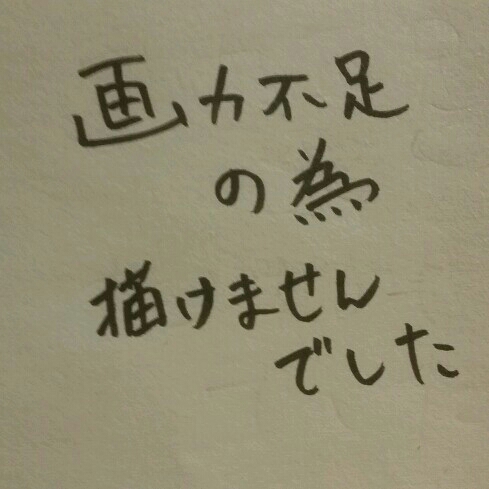 画力不足
の為
描けません
でした